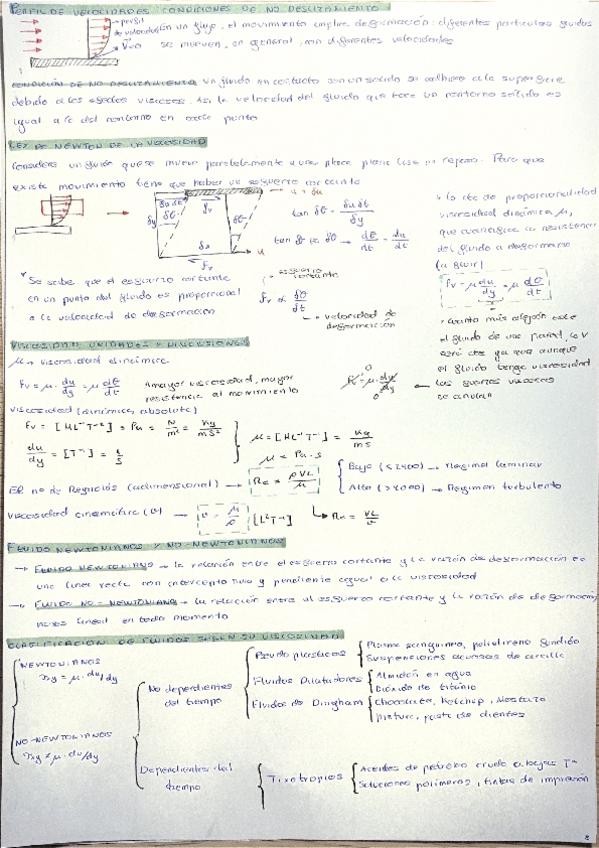 PERFIL DE VELOCIDADES CONDICIONES DE NO DESLIZAMIENTO
perfil
de velocidad
En un flujo, el movimiento implica deformación: diferentes partículas fluidas
se mueven, en general, con diferentes velocidades
CONDICIÓN DE NO DESLIZAMIENTO un fluido en contacto con un sólido se adhiere a la superficie
debido a los efectos viscosos. Así la velocidad del fluido que toca un contorno sólido es
igual a la del contorno en cada punto
LEY DE NEWTON DE LA VISCOSIDAD
Considera un fluido que se mueve paralelamente a una placa plana lisa en reposo. Para que
exista movimiento tiene que haber un esfuerzo cortante
tan δθ = δu δt / δy
tan δθ ≈ δθ → dθ/dt = du/dy
Se sabe que el esfuerzo cortante
en un punto del fluido es proporcional
a la velocidad de deformación
esfuerzo
cortante
Fv α δθ/δt
velocidad de
deformación
la cte de proporcionalidad
viscosidad dinámica μ,
que caracteriza la resistencia
del fluido a deformarse
(a fluir)
Fv = μ du/dy = μ dθ/dt
Cuanto más alejado esté
el fluido de una pared, la V
será cte ya que aunque
el fluido tenga viscosidad
las fuerzas viscosas
se anulan
VISCOSIDAD: UNIDADES Y DIMENSIONES
μ → viscosidad dinámica
Fv = μ · du/dy = μ dθ/dt
A mayor viscosidad, mayor
resistencia al movimiento
Fv = μ · du/dy
Viscosidad (dinámica, absoluta)
Fv = [ML⁻¹T⁻²] = Pa = N/m² = kg/ms²
du/dy = [T⁻¹] = 1/s
μ = [ML⁻¹T⁻¹] = kg/ms
μ = Pa · s
El nº de Reynolds (adimensional) → Re = ρVL/μ
Bajo (<2400) → Régimen laminar
Alto → Régimen turbulento
Viscosidad cinemática (υ) → υ = μ/ρ [L²T⁻¹] ↳ Re = VL/υ
FLUIDO NEWTONIANOS Y NO-NEWTONIANOS
→ FLUIDO NEWTONIANO → la relación entre el esfuerzo cortante y la razón de deformación es
una línea recta con intercepto nulo y pendiente igual a la viscosidad
→ FLUIDO NO-NEWTONIANO → la relación entre el esfuerzo cortante y la razón de deformación
no es lineal en todo momento
CLASIFICACIÓN DE FLUIDOS SEGÚN SU VISCOSIDAD
NEWTONIANOS
τxy = μ · du/dy
NO-NEWTONIANOS
τxy ≠ μ · du/dy
No dependientes
del tiempo
Dependientes del
tiempo
Pseudoplásticos
Plasma sanguíneo, polietileno fundido
Suspensiones acuosas de arcilla
Fluidos Dilatadores
Almidón en agua
Dióxido de titanio
Fluidos de Bingham
Chocolate, Ketchup, Mostaza
pintura, pasta de dientes
Tixotropios
Aceites de petróleo crudo a bajas Tª
Soluciones polímeros, tintas de impresión